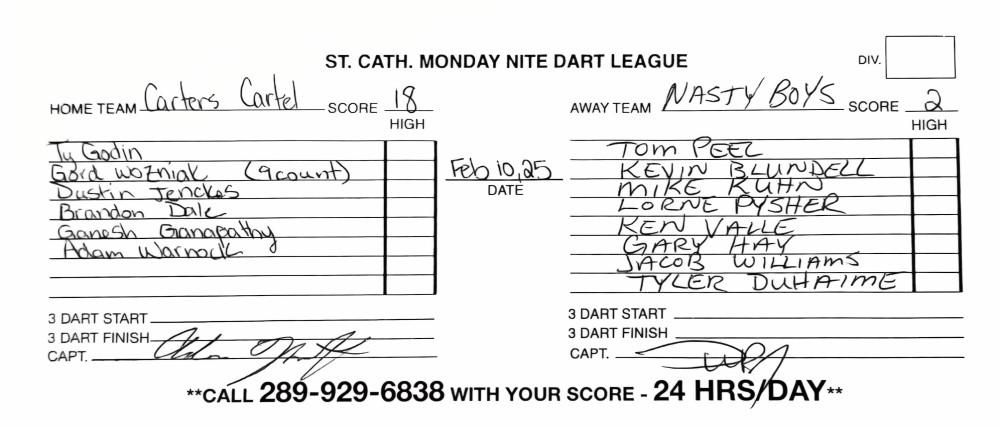 ST. CATH. MONDAY NITE DART LEAGUE
DIV.
HOME TEAM Carters Cartel SCORE 18
HIGH
Ty Godin
Gord Wozniak (9count)
Dustin Jenckes
Brandon Dale
Ganesh Ganapathy
Adam Warnock
3 DART START
3 DART FINISH
CAPT.
Feb 10,25
DATE
AWAY TEAM NASTY BOYS SCORE 2
HIGH
TOM PEEL
KEVIN BLUNDELL
MIKE KUHN
LORNE PYSHER
KEN VALLE
GARY HAY
JACOB WILLIAMS
TYLER DUHAIME
3 DART START
3 DART FINISH
CAPT.
**CALL 289-929-6838 WITH YOUR SCORE - 24 HRS/DAY**